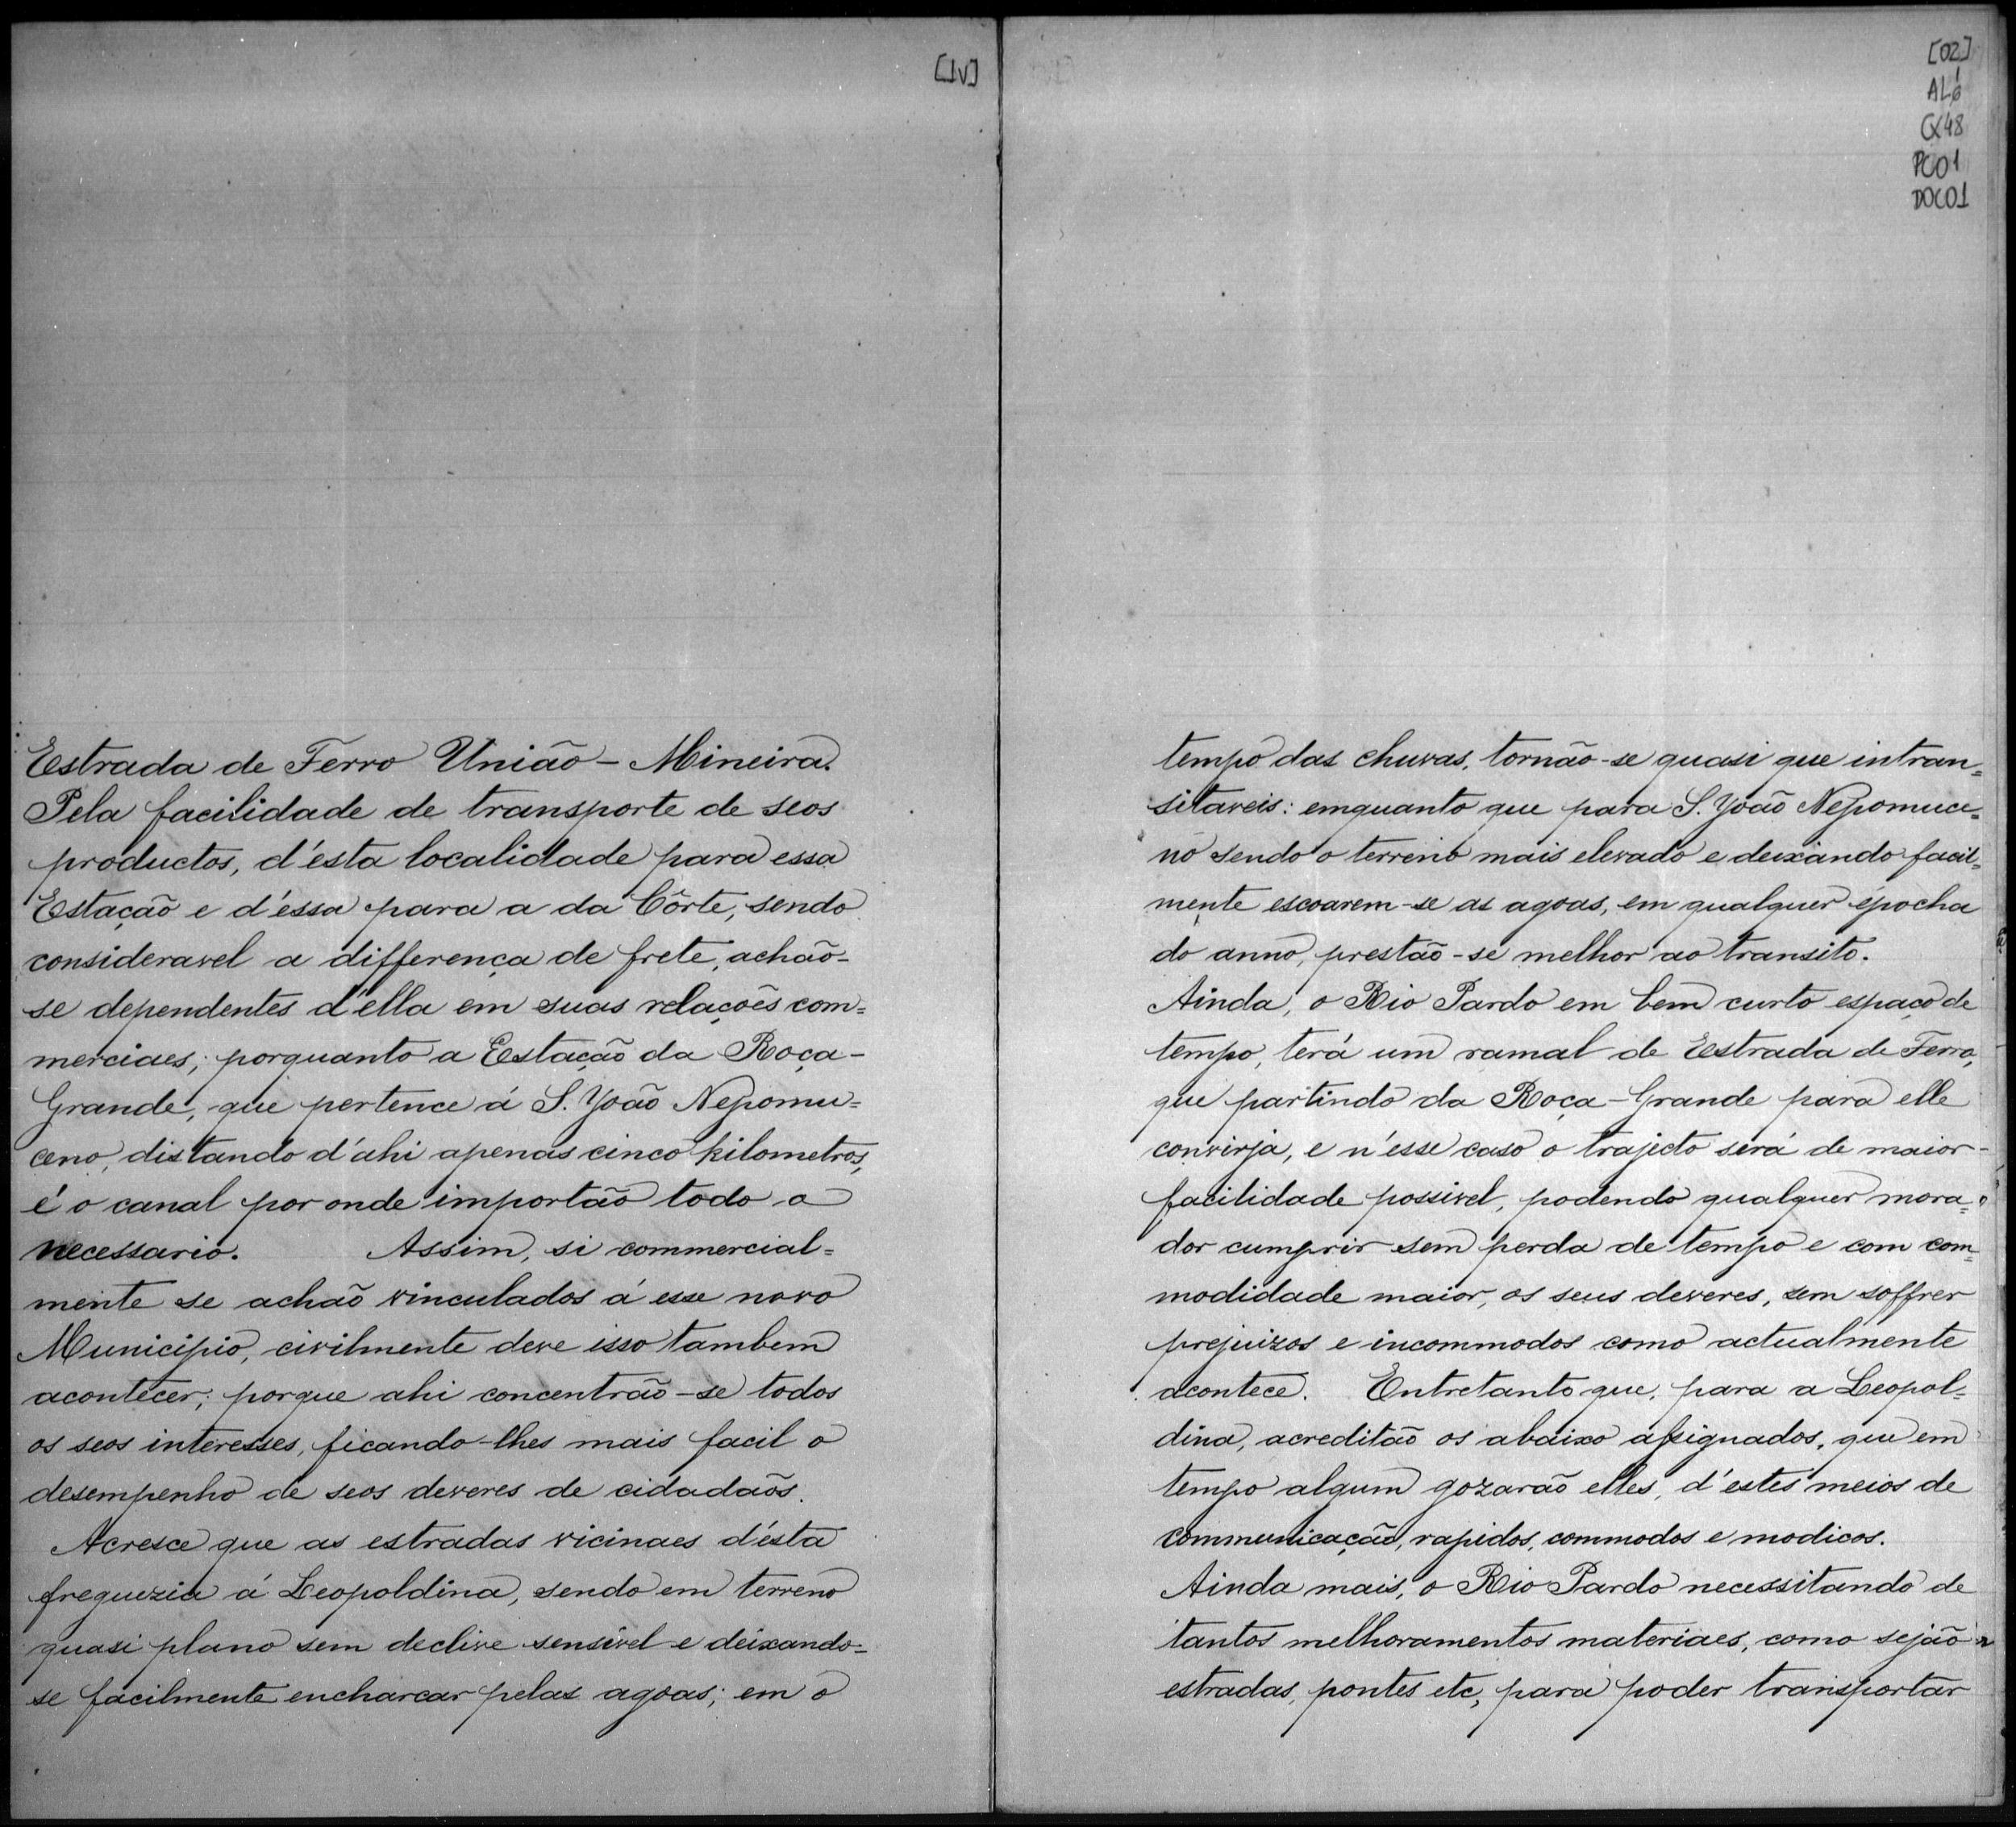 [1v]
Estrada de Ferro União - Mineira.
Pela facilidade de transporte de seos
productos, d'ésta localidade para essa
Estação e d'éssa para a da Côrte, sendo
consideravel a differença de frete, achão-
se dependentes d'ella em suas relações com=
merciaes; porquanto a Estação da Roça-
Grande, que pertence á S. João Nepomu=
ceno, distando d'ahi apenas cinco kilometros,
é o canal por onde importão todo o
necessario. Assim, si commercial=
mente se achão vinculados á esse novo
Municipio, civilmente deve isso tambem
acontecer; porque ahi concentrão-se todos
os seos interesses, ficando-lhes mais facil o
desempenho de seos deveres de cidadãos.
Acresce que as estradas vicinaes d'ésta
freguezia á Leopoldina, sendo em terreno
quasi plano sem declive sensivel e deixando=
se facilmente encharcar pelas agoas; em o
[02]
AL6
CX48
PC01
DOC01
tempo das chuvas, tornão-se quasi que intran=
sitaveis: emquanto que para S. João Nepomuce=
no sendo o terreno mais elevado e deixando facil=
mente escoarem-se as agoas, em qualquer épocha
do anno, prestão-se melhor ao transito.
Ainda, o Rio Pardo em bem curto espaço de
tempo, terá um ramal de Estrada de Ferro,
que partindo da Roça-Grande para elle
convirja, e n'esse caso o trajecto será de maior
facilidade possivel, podendo qualquer mora=
dor cumprir sem perda de tempo e com com=
modidade maior, os seus deveres, sem soffrer
prejuizos e incommodos como actualmente
acontece. Entretanto que, para a Leopol=
dina, acreditão os abaixo assignados, que em
tempo algum gozarão elles, d'estes meios de
communicação, rapidos, commodos e modicos.
Ainda mais, o Rio Pardo necessitando de
tantos melhoramentos materiaes, como sejão
estradas, pontes etc, para poder transportar